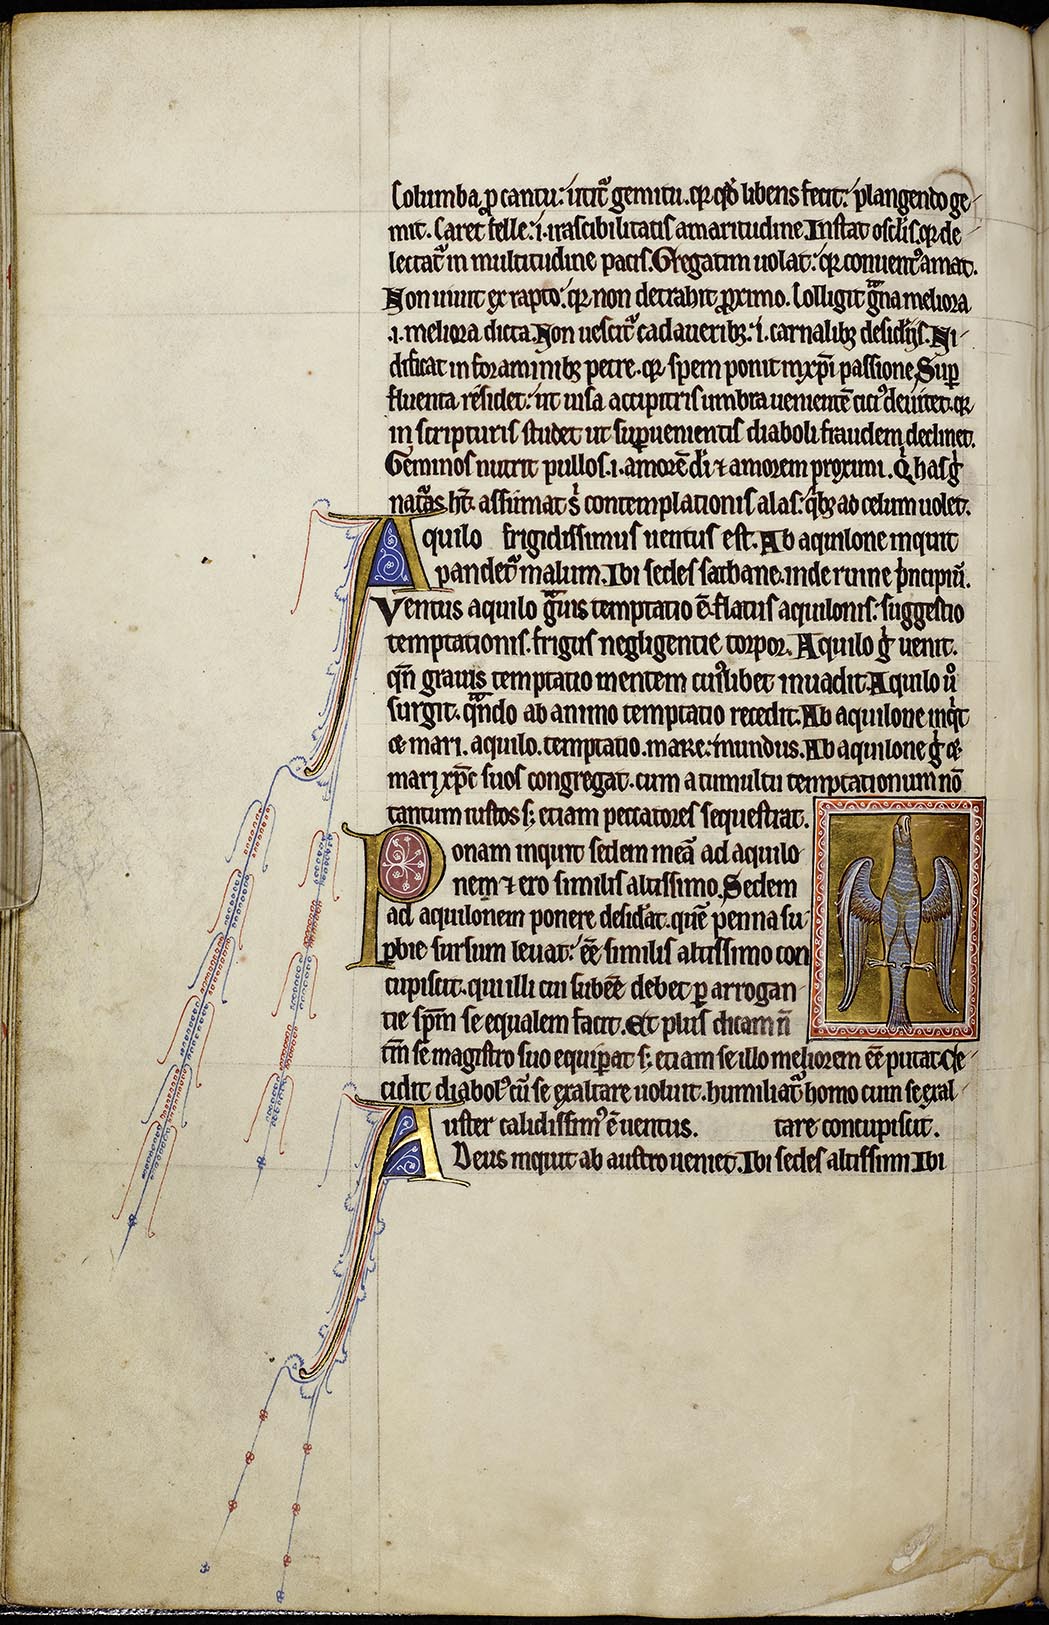 Columba p̱ cantu: utit᷑ gemitu. qꝛ qd̓ libens fecit: plangendo ge-
mit. Caret felle: .i. irascibilitatis amaritudine. Instat osclis. qꝛ de
lectat᷑ in multitudine pacis. Gregatim uolat: qꝛ conuent᷒ amat.
Non uiuit ex rapto: qꝛ non detrahit ꝓximo. Colligit gͣna meliora
.i. meliora dicta. Non uescit᷑ cadaueribꝫ: .i. carnalibꝫ desid̓ijs. Ni-
dificat in foraminibꝫ petre. qꝛ spem ponit in xp̄i passione. Suꝑ
fluenta residet: ut uisa accipitris umbra uenientē citi᷒ deuitet. qꝛ
in scripturis studet ut suꝑuenientis diaboli fraudem declinet.
Geminos nutrit pullos .i. amorē dī ⁊ amorem proximi. Qͥ has gͥ
nat᷑as ht̄. assumat sͥ contemplationis alas: qͥbꝫ ad celum uolet.
Aquilo frigidissimus uentus est. Ab aquilone inquit
pandet᷑ malum. Ibi sedes sathane. inde ruine pͥncipiū.
Ventus aquilo gͣuis temptatio ē. flatus aquilonis: suggestio
temptationis. frigus negligentie torpor. Aquilo gͥ uenit.
qn̄ grauis temptatio mentem cui᷒libet inuadit. Aquilo ū
surgit. qͣndo ab animo temptatio recedit. Ab aquilone inqͥt
⁊ mari. aquilo. temptatio. mare: mundus. Ab aquilone gͥ ⁊
mari xp̄c suos congregat. cum a tumultu temptationum nō
tantum iustos sꝫ etiam peccatores sequestrat.
Ponam inquit sedem meā ad aquilo
nem ⁊ ero similis altissimo. Sedem
ad aquilonem ponere desid̓at. quē penna su-
ꝑbie sursum leuat: eē similis altissimo con
cupiscit. qui illi cui subeē debet ꝑ arrogan-
tie sp̄m se equalem facit. Et plus dicam n̄
tm̄ se magistro suo equiꝑat sꝫ etiam se illo meliorem eē putat. Ce-
cidit diabol᷒ cū se exaltare uoluit. humiliat᷑ homo cum se exal-
Auster calidissim᷒ ē uentus. tare concupiscit.
Deus inquit ab austro ueniet. Ibi sedes altissimi Ibi